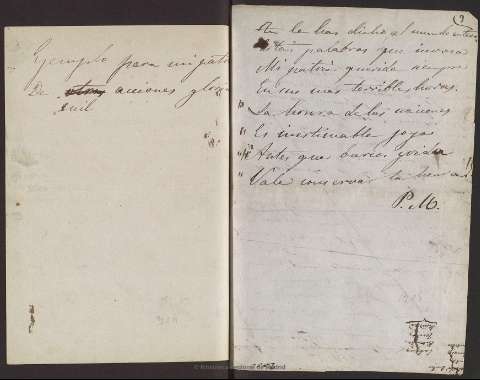 Ejemplo para mi patria
De acciones
mil
Tu lo has dicho al mundo entero
palabras que invoca
Mi patria querida siempre
En sus mas terribles horas.
La honra de las naciones
Es inestimable joya
Antes que barcos
Vale conservar la honra!!
P. M.